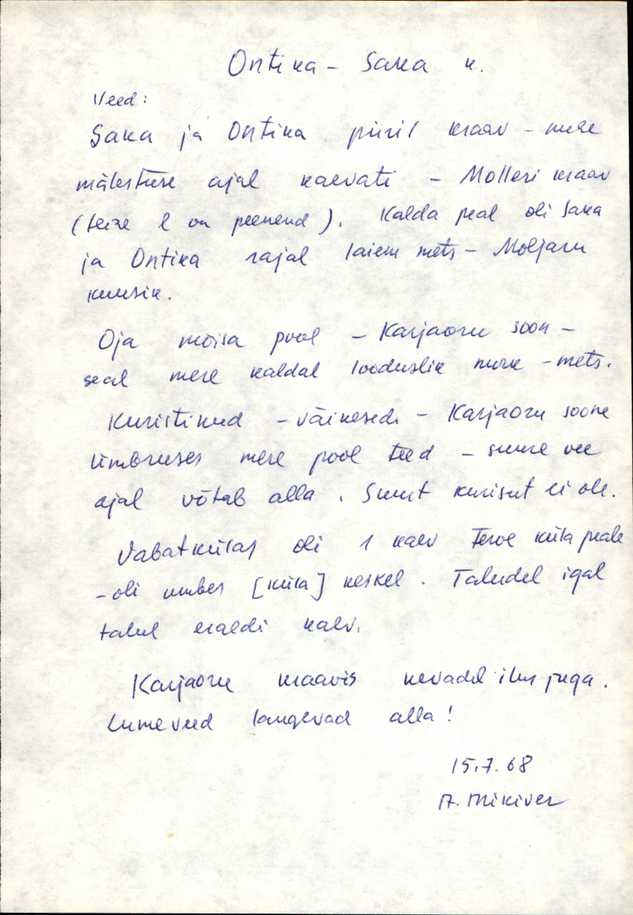 Ontika - Saka k.
Veed:
Saka ja Ontika piiril kraav - meie
mälestuse ajal kaevati - Molleri kraav
(teine l on peenend). Kalda peal oli Saka
ja Ontika rajal laiem mets - Moljaru
kuusik.
Oja moisa pool - Karjaoru soon -
seal mere kaldal looduslik - mets.
Kuristikud - väikesed - Karjaoru soone
ümbruses mere pool teed - suure vee
ajal võtab alla. Suurt kurisut ei ole.
Vabatkülas oli 1 kaev terve küla peale
- oli umbes [küla] keskel. Taludel igal
talul eraldi kaev.
Karjaoru kraavis kevadel ilus juga.
Lumeveed langevad alla!
15.7.68
A. Mikiver